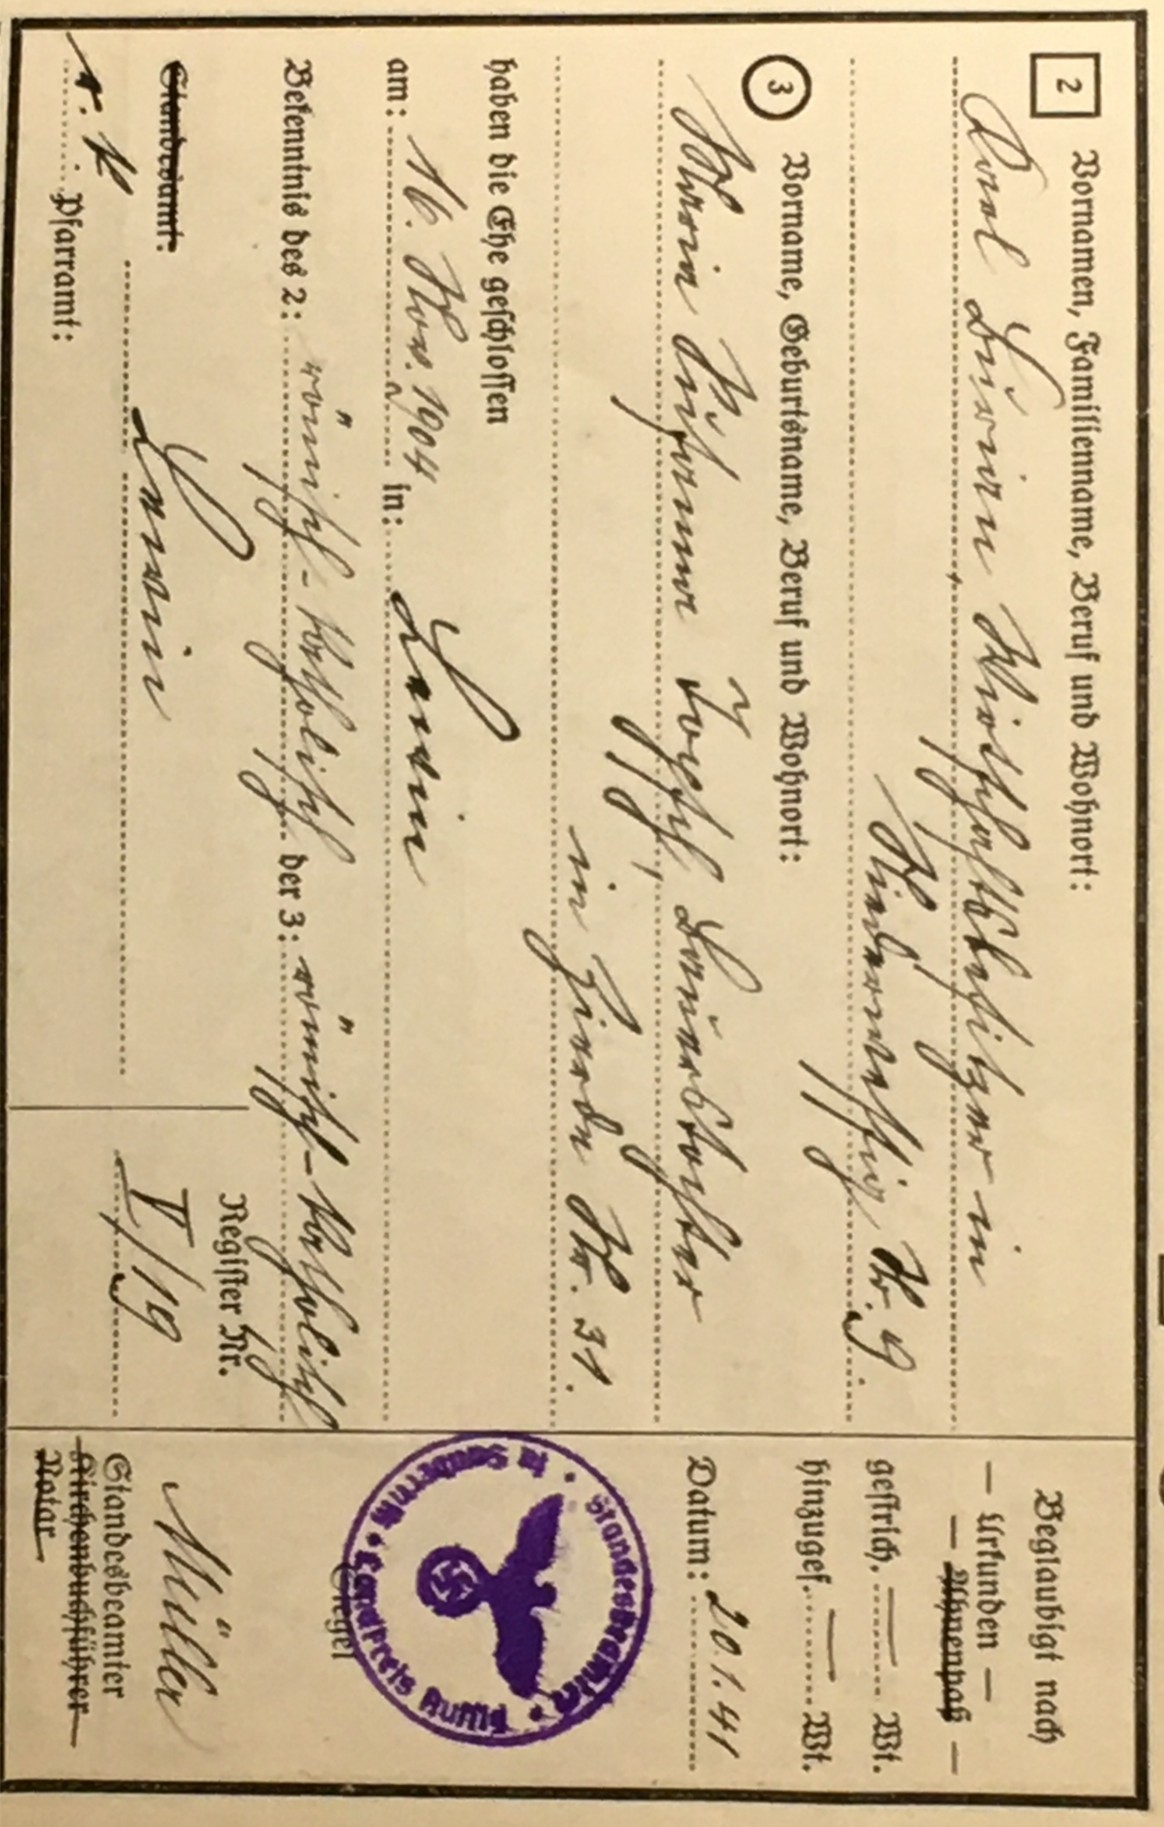 2 Vornamen, Familienname, Beruf und Wohnort:
Karl Burian, Wirtschaftsbesitzer in
Niederwessig Nr. 9.
3 Vorname, Geburtsname, Beruf und Wohnort:
Maria Susanna Topsch, Bauerstochter
in Zierde Nr. 31.
haben die Ehe geschlossen
am: 16. Nov. 1904 in: Lewin
Bekenntnis des 2: römisch-katholisch der 3: römisch-katholisch
Standesamt: Lewin
r. k. Pfarramt:
Register Nr.
V/19
Beglaubigt nach
— Urkunden —
— Ahnenpaß —
gestrich. — Wt.
hinzugef. — Wt.
Datum: 20.1.41
Standesbeamter
Landkreis Aussig
Siegel
Müller
Standesbeamter
Kirchenbuchführer
Notar